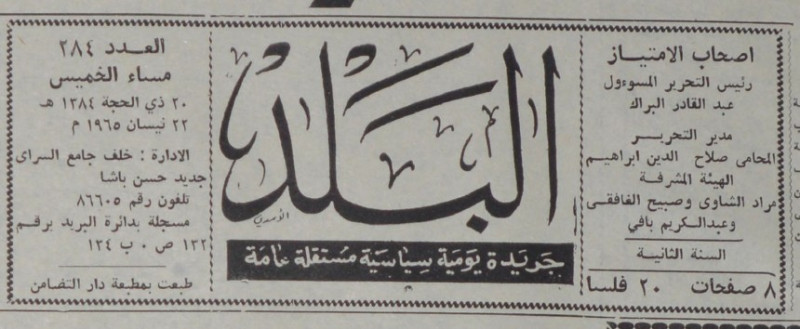 اصحاب الامتياز
رئيس التحرير المسؤول
عبد القادر البراك
مدير التحرير
المحامى صلاح الدين ابراهيم
الهيئة المشرفة
مراد الشاوى وصبيح الغافقى
وعبدالكريم بافي
السنة الثانية
٨ صفحات ٢٠ فلسا
البلد
جريدة يومية سياسية مستقلة عامة
العدد ٢٨٤
مساء الخميس
٢٠ ذي الحجة ١٣٨٤ هـ
٢٢ نيسان ١٩٦٥ م
الادارة : خلف جامع السراى
جديد حسن باشا
تلفون رقم ٨٦٦٠٥
مسجلة بدائرة البريد برقم
١٣٢ ص ٠ ب ١٣٤
طبعت بمطبعة دار التضامن